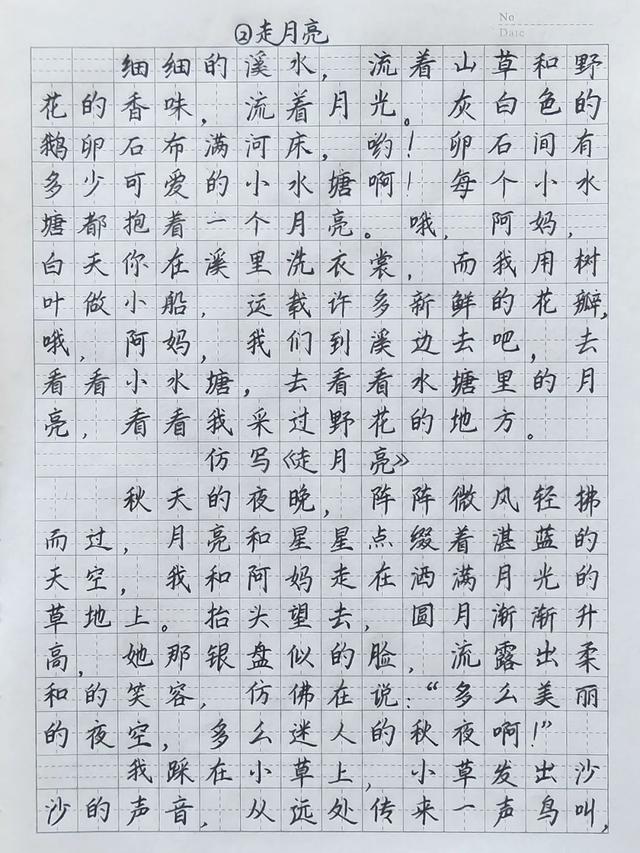 No
Date
②走月亮
细细的溪水，流着山草和野
花的香味，流着月光。灰白色的
鹅卵石布满河床，哟！卵石间有
多少可爱的小水塘啊！每个小水
塘都抱着一个月亮。哦，阿妈，
白天你在溪里洗衣裳，而我用树
叶做小船，运载许多新鲜的花瓣，
哦，阿妈，我们到溪边去吧，去
看看小水塘，去看看水塘里的月
亮，看看我采过野花的地方。
仿写《走月亮》
秋天的夜晚，阵阵微风轻拂
而过，月亮和星星点缀着湛蓝的
天空，我和阿妈走在洒满月光的
草地上。抬头望去，圆月渐渐升
高，她那银盘似的脸，流露出柔
和的笑容，仿佛在说：“多么美丽
的夜空，多么迷人的秋夜啊！”
我踩在小草上，小草发出沙
沙的声音，从远处传来一声鸟叫，